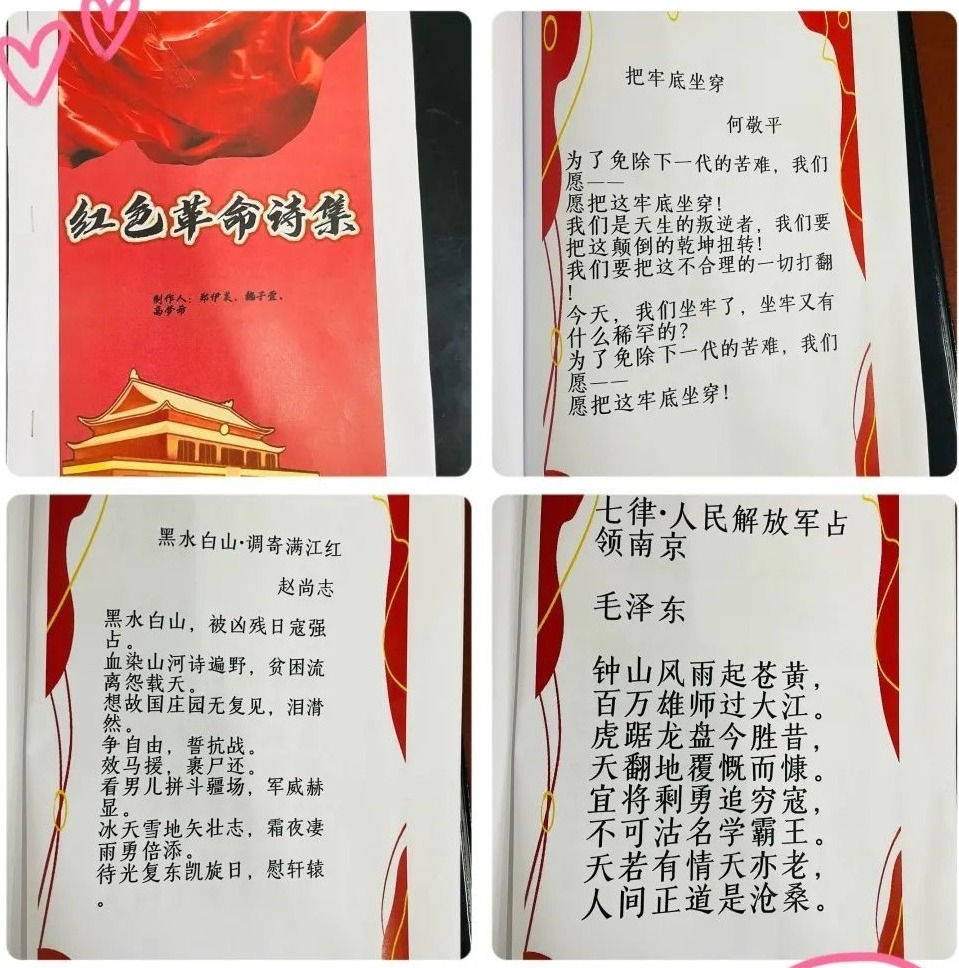 红色革命诗集
制作人：郑伊美、魏子萱、
高梦希
把牢底坐穿
何敬平
为了免除下一代的苦难，我们
愿——
愿把这牢底坐穿！
我们是天生的叛逆者，我们要
把这颠倒的乾坤扭转！
我们要把这不合理的一切打翻
！
今天，我们坐牢了，坐牢又有
什么稀罕的？
为了免除下一代的苦难，我们
愿——
愿把这牢底坐穿！
黑水白山·调寄满江红
赵尚志
黑水白山，被凶残日寇强
占。
血染山河诗遍野，贫困流
离怨载天。
想故国庄园无复见，泪潸
然。
争自由，誓抗战。
效马援，裹尸还。
看男儿拼斗疆场，军威赫
显。
冰天雪地矢壮志，霜夜凄
雨勇倍添。
待光复东凯旋日，慰轩辕
。
七律·人民解放军占
领南京
毛泽东
钟山风雨起苍黄，
百万雄师过大江。
虎踞龙盘今胜昔，
天翻地覆慨而慷。
宜将剩勇追穷寇，
不可沽名学霸王。
天若有情天亦老，
人间正道是沧桑。